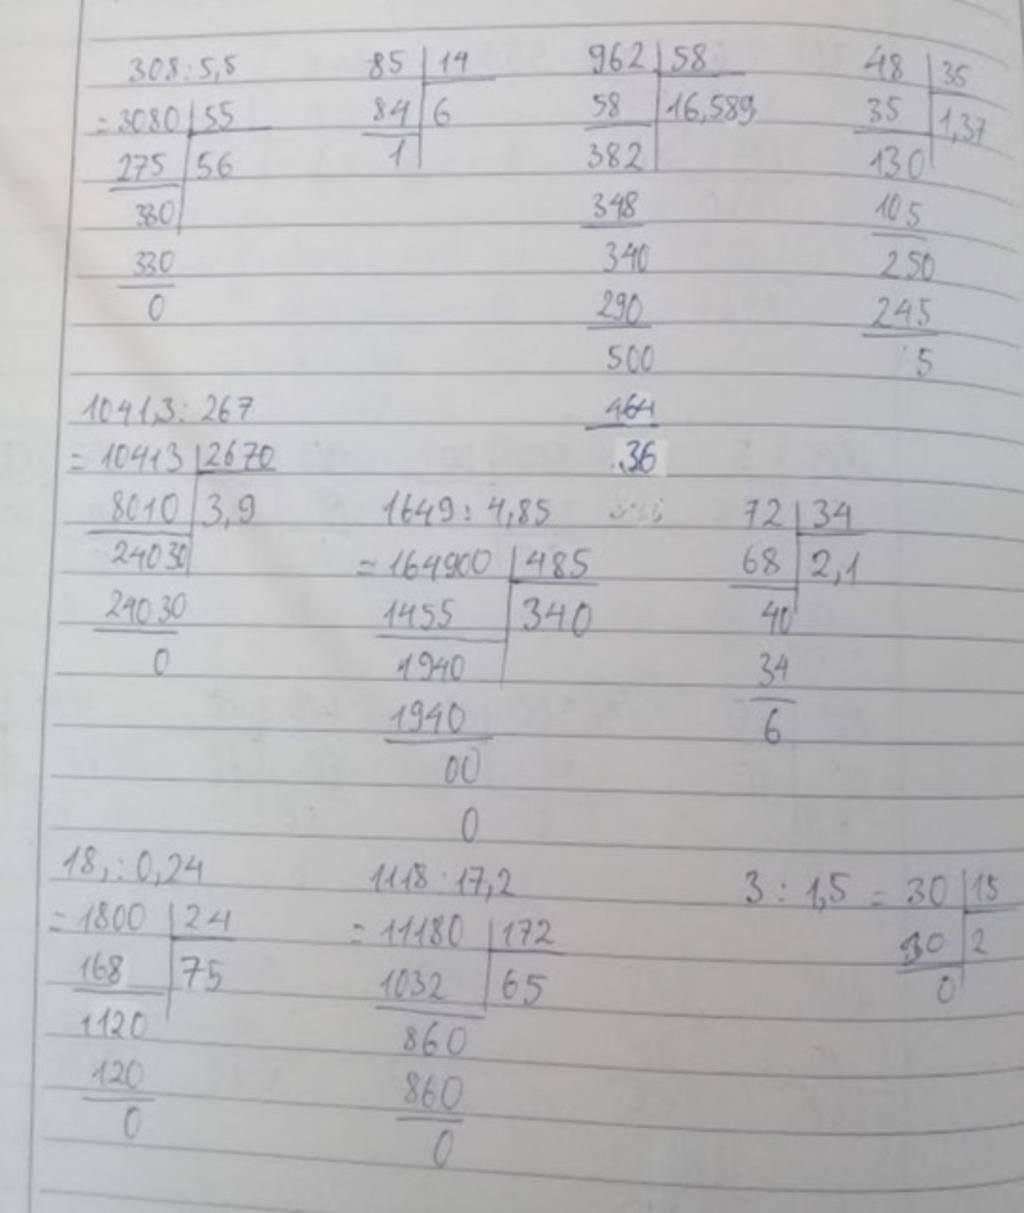 308:5,5
=3080 55
275 56
330
330
0
85 14
84 6
1
962 58
58 16,589
382
348
340
290
500
464
36
48 35
35 1,37
130
105
250
245
5
1041,3: 267
= 10413 2670
8010 3,9
24030
24030
0
1649: 4,85
=164900 485
1455 340
1940
1940
00
0
72 34
68 2,1
40
34
6
18,: 0,24
=1800 24
168 75
1120
120
0
1118:17,2
=11180 172
1032 65
860
860
0
3 : 1,5 = 30 15
30 2
0